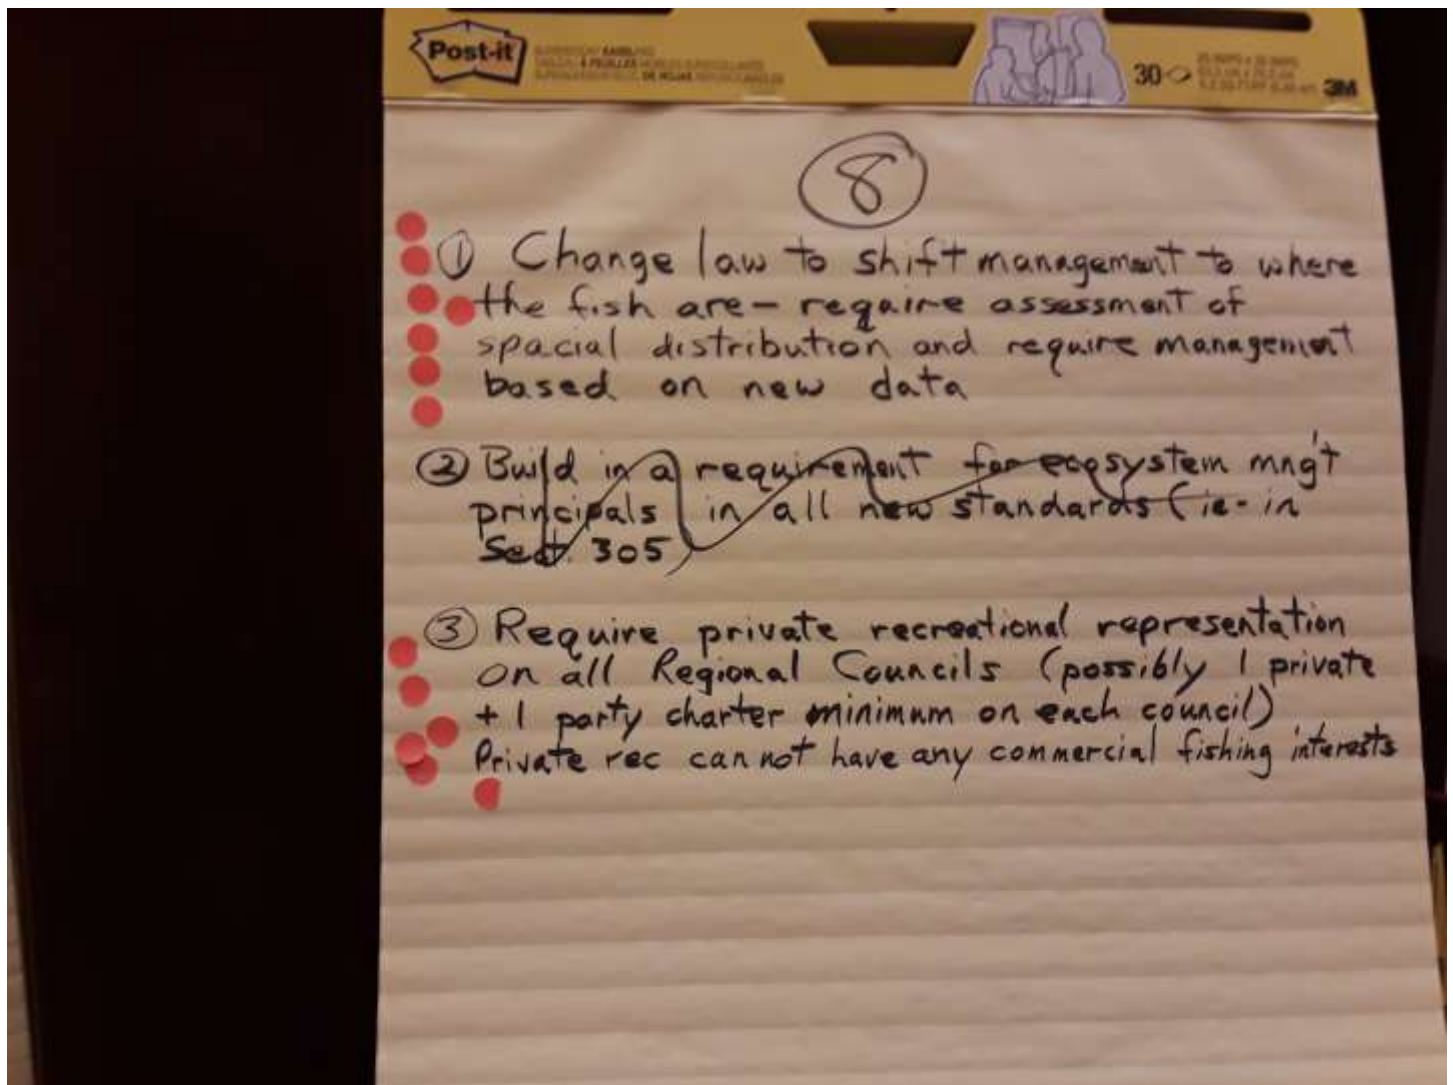 Post-it
30
3M
8
① Change law to shift management to where
the fish are - require assessment of
spacial distribution and require management
based on new data
② Build in a requirement for ecosystem mng't
principals in all new standards (ie- in
Sect. 305)
③ Require private recreational representation
on all Regional Councils (possibly 1 private
+ 1 party charter minimum on each council)
Private rec can not have any commercial fishing interests